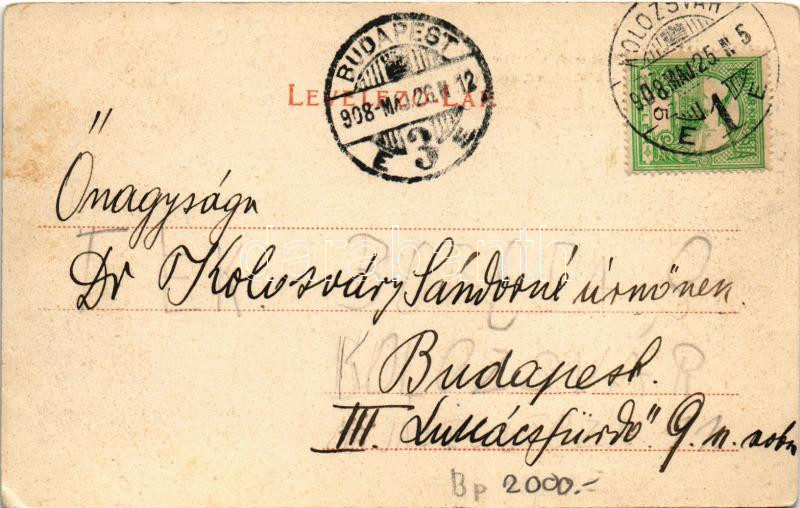 KOLOZSVÁR
908 MAJ. 25. N 5
1
E
BUDAPEST
908 MAJ. 26. N 12
E 3 E
LEVELEZŐ-LAP
Őnagysága
Dr Kolosváry Sándorné úrnőnek
Budapest.
III. Lukácsfürdő 9.
KOLOZSVÁR
darabanth
Bp 2000.-